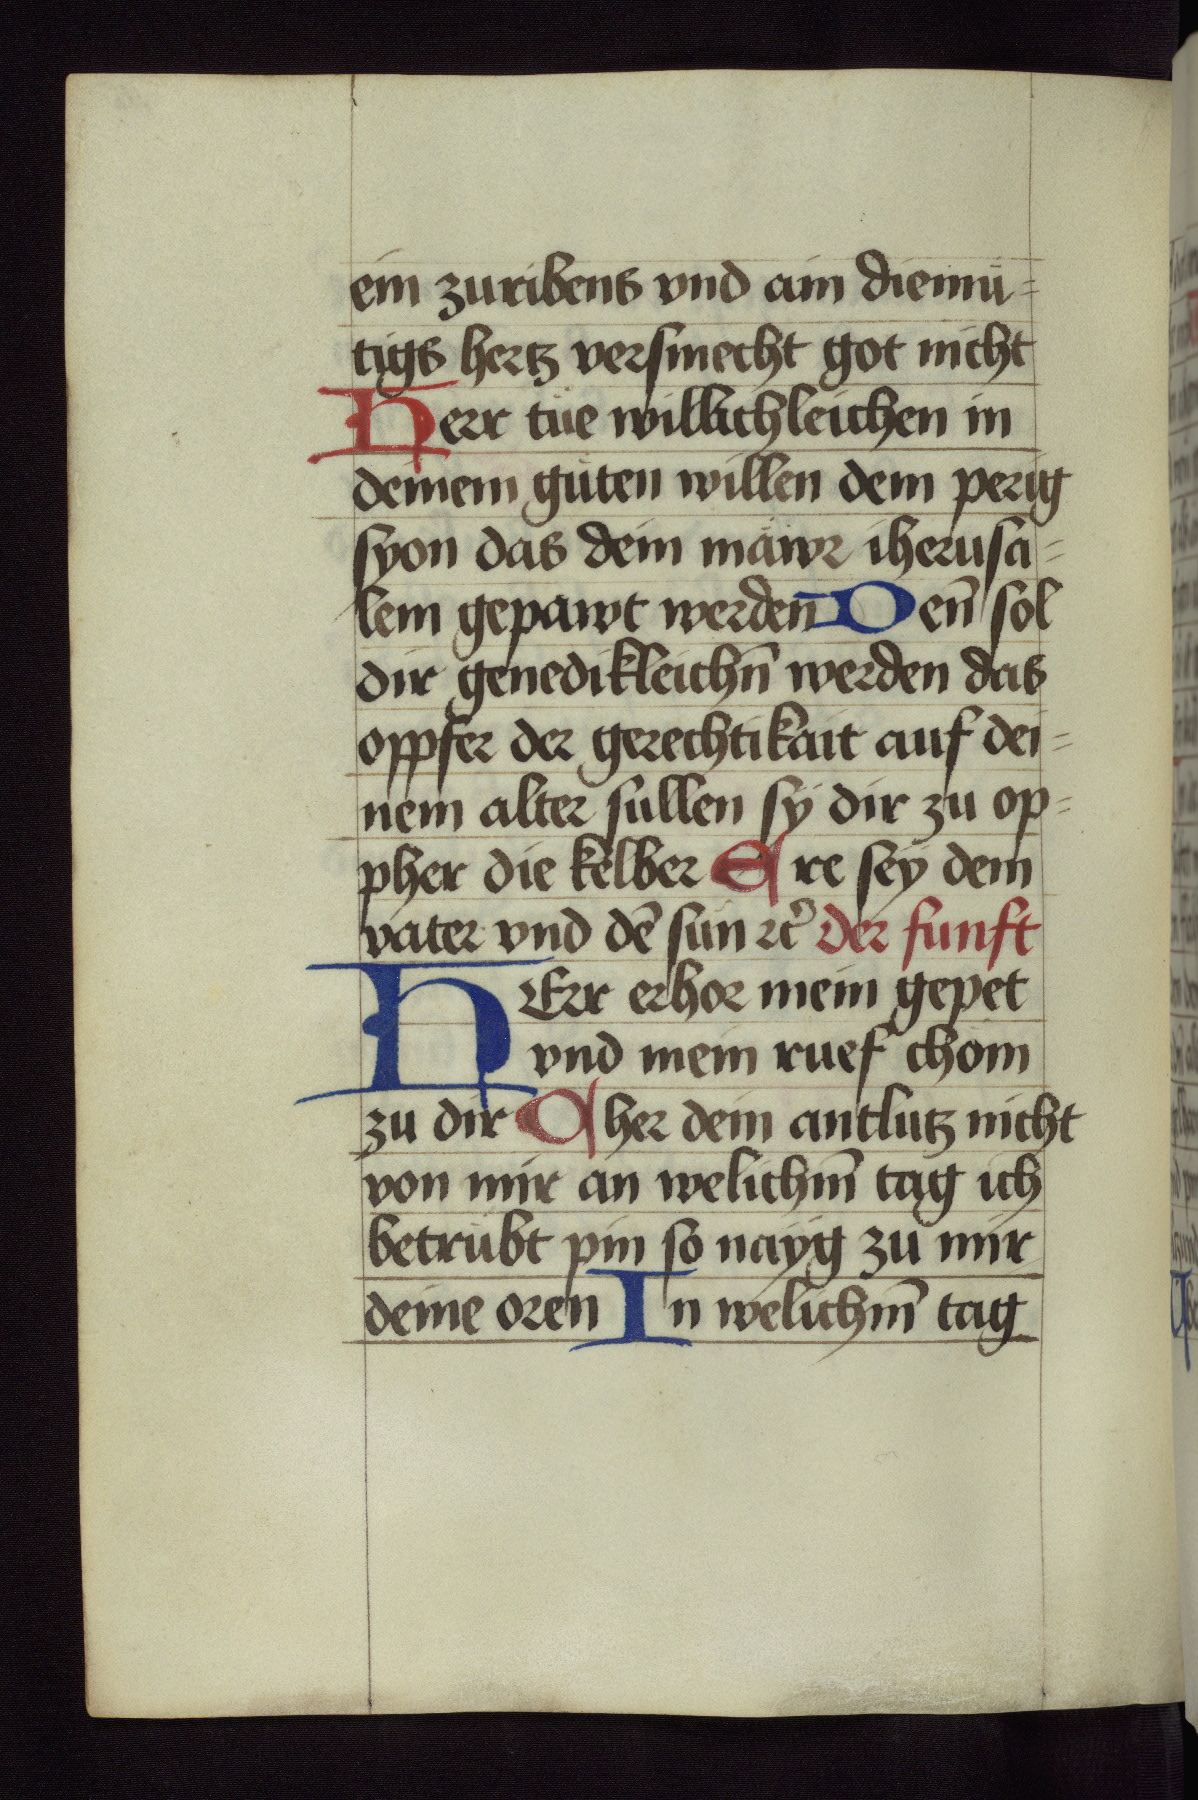 ein zuribens vnd ain diemü=
tigs hertz versmecht got nicht
Herr tüe willichleichen in
deinem güten willen dem perig
syon das dein mäwr iherusa=
lem gepawt werden Den̄ sol
dir genedikleichn̄ werden das
oppfer der gerechtikait auf dei=
nem alter süllen sy dir zu op=
pher die kelber Ere sey dem
vater vnd dē sun ꝛc̄ der funft
HErr erhor mein gepet
vnd mein ruef chöm
zu dir Cher dein antlutz nicht
von mir an welichm̄ tag ich
betrübt pin so nayg zu mir
deine oren In welichm̄ tag